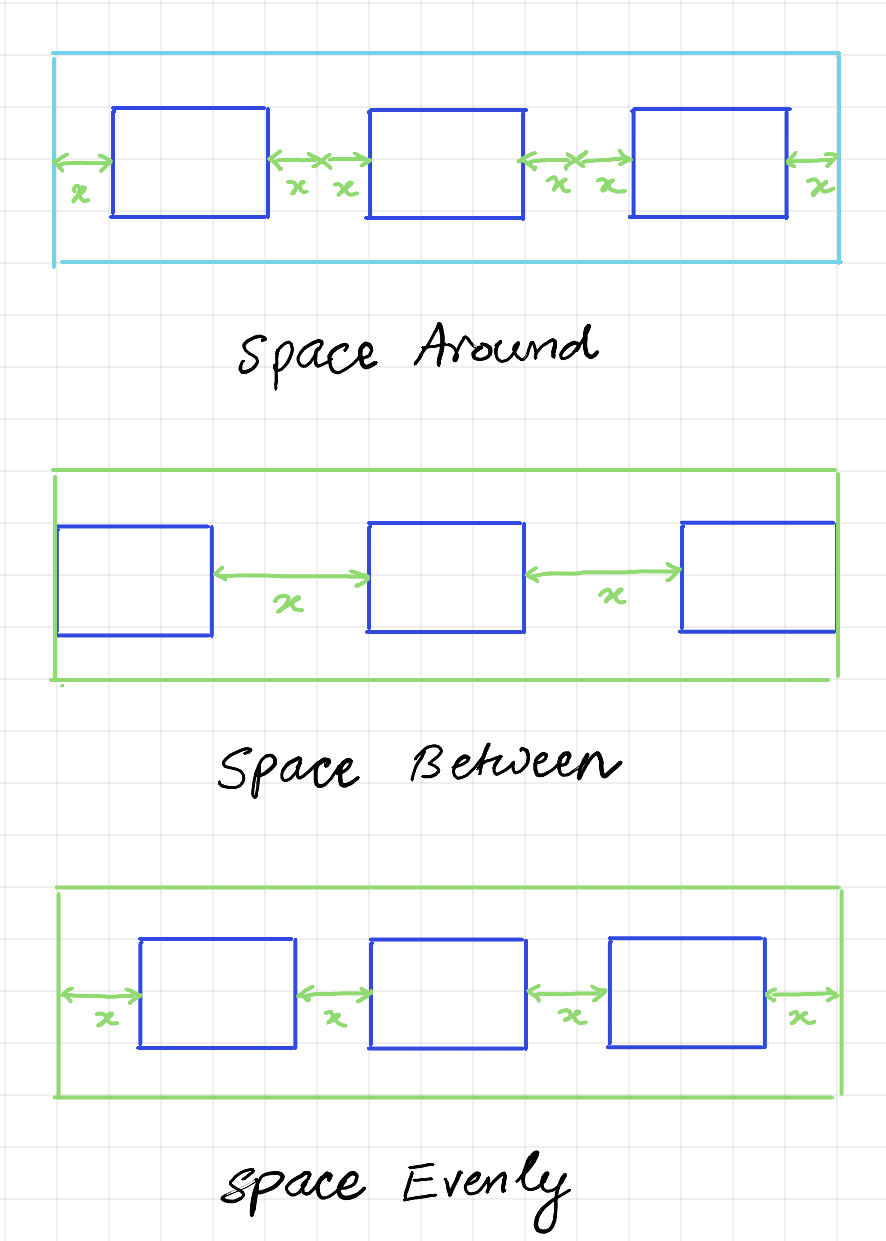 x x x x x x
Space Around
x x
Space Between
x x x x
Space Evenly